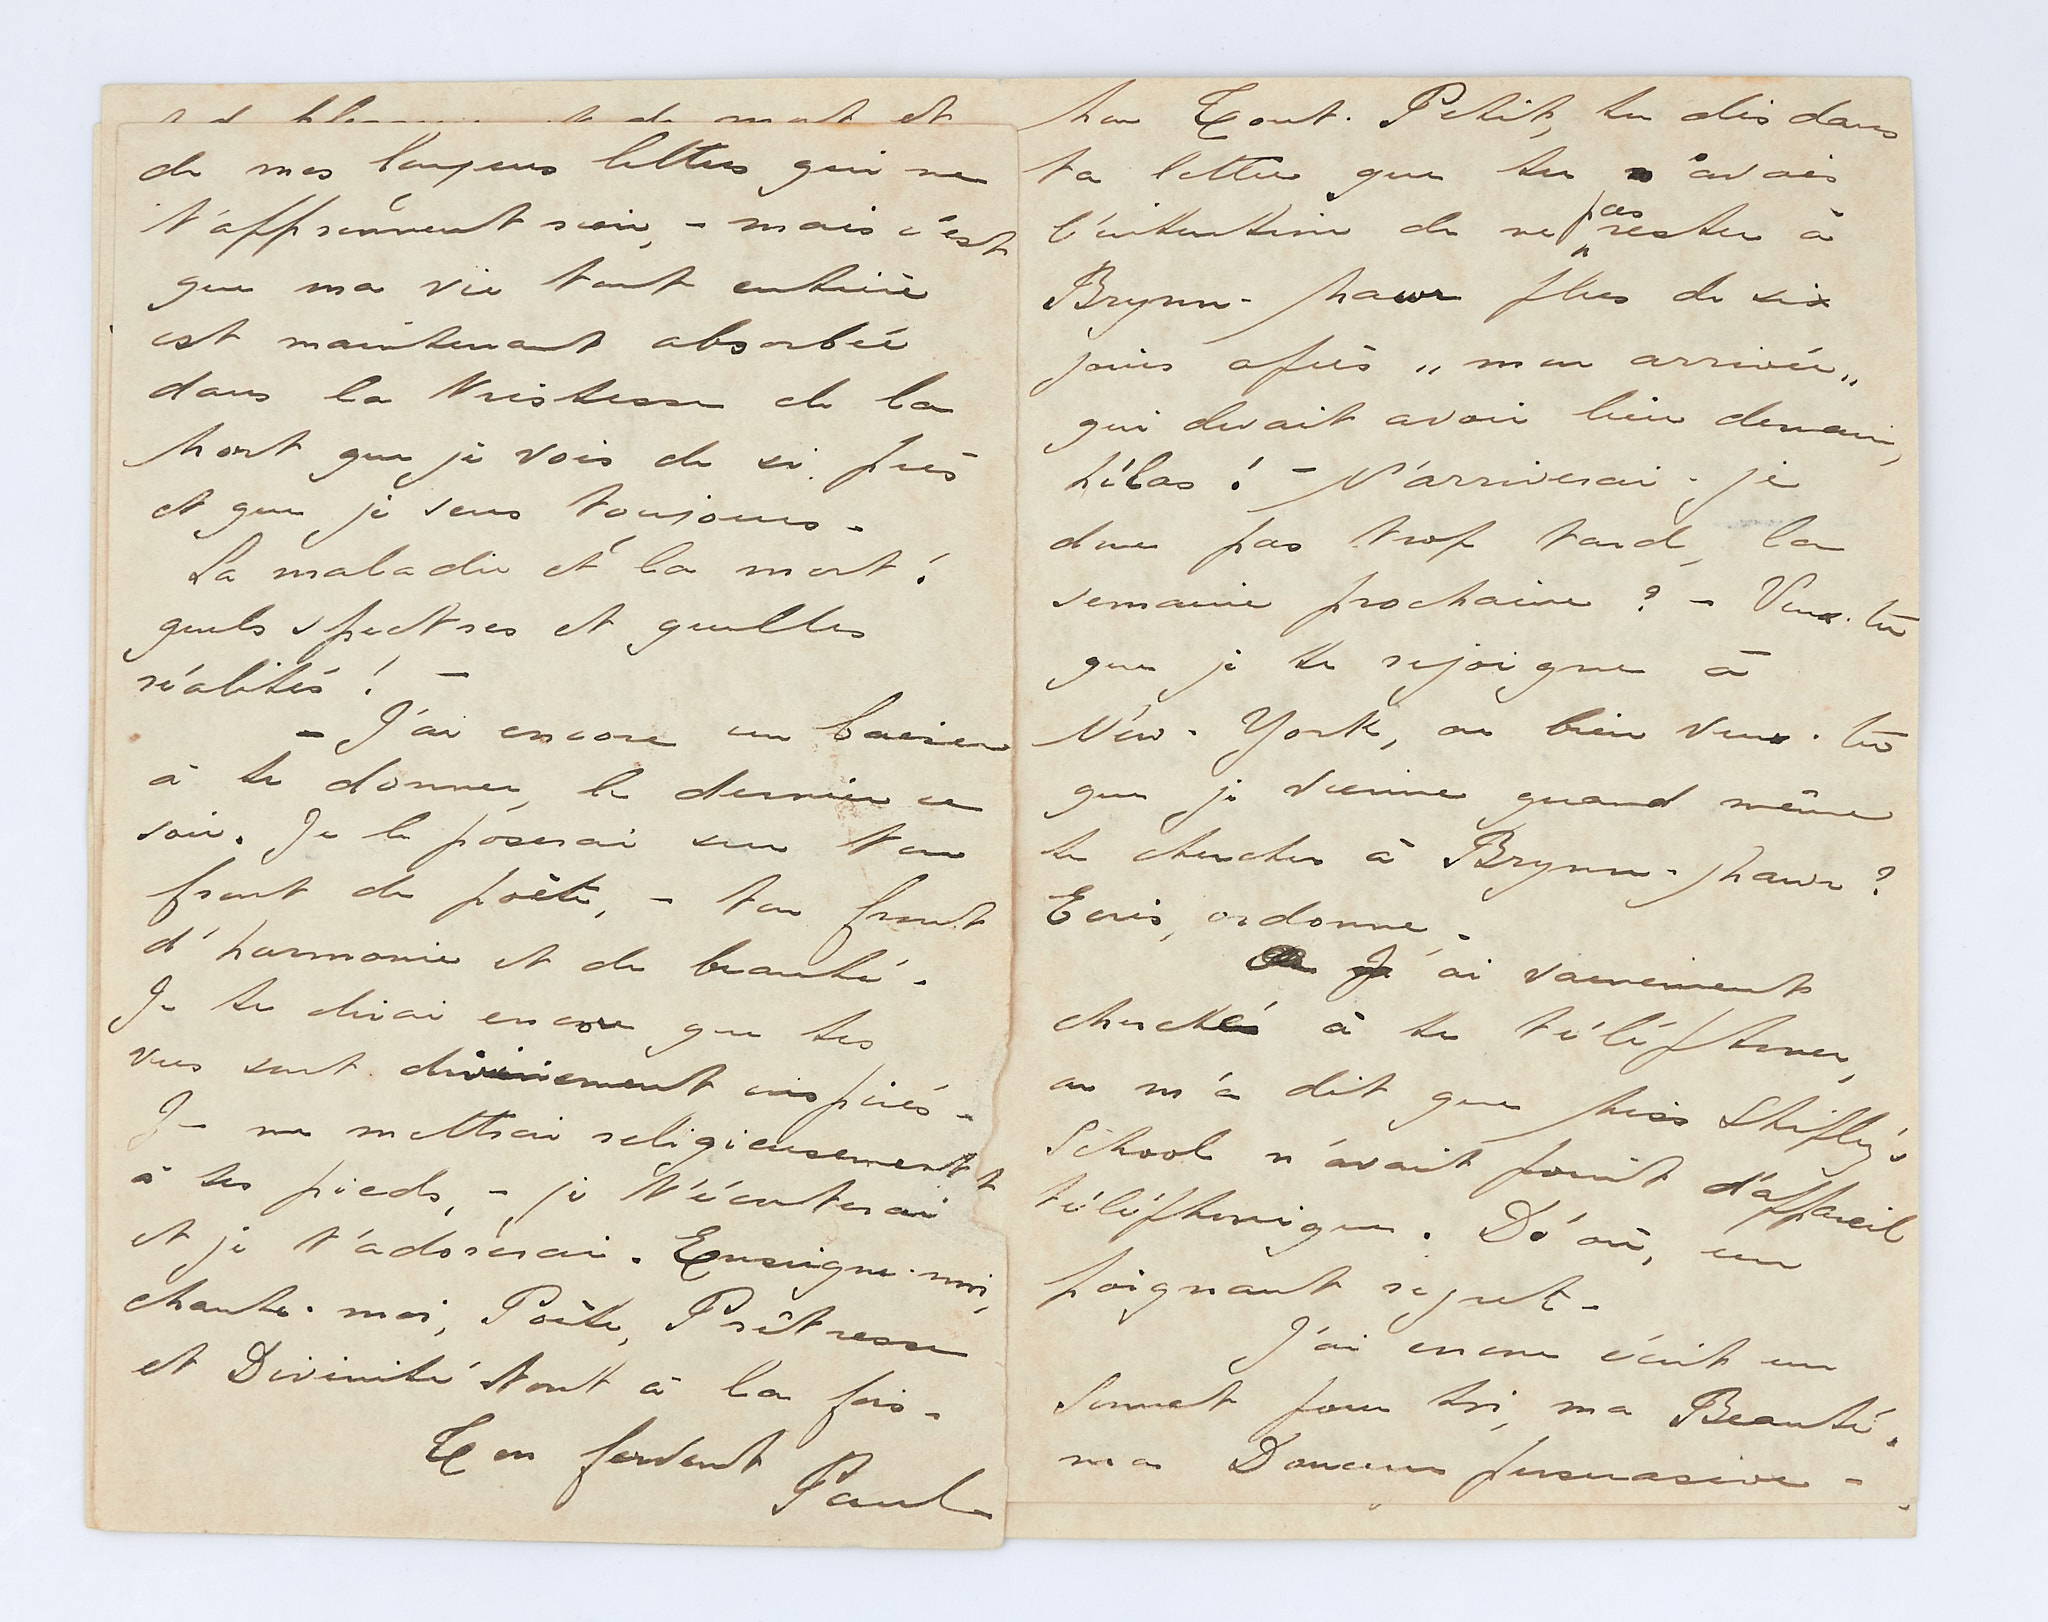 de mes longues lettres qui ne
t'apprennent rien, - mais c'est
que ma vie tout entière
est maintenant absorbée
dans la tristesse de la
Mort que je vois de si près
et que je sens toujours -
La maladie et la mort !
quels spectres et quelles
réalités ! -
- J'ai encore un baiser
à te donner, le dernier ce
soir. Je le poserai sur ton
front de poète, - ton front
d'harmonie et de beauté -
Je te dirai encore que tes
vers sont divinement inspirés -
Je me mettrai religieusement
à tes pieds, - je t'écouterai
et je t'adorerai. Enseigne-moi,
chante-moi, Poète, Prêtresse
et Divinité tout à la fois -
Ton fervent
Paul
Mon Tout. Petit, tu dis dans
ta lettre que tu avais
l'intention de ne pas rester à
Brynn-Mawr plus de six
jours après „ mon arrivée „
qui devait avoir lieu demain,
hélas ! - N'arriverai-je
donc pas trop tard, la
semaine prochaine ? - Veux-tu
que je te rejoigne à
New-York, ou bien veux-tu
que je vienne quand même
te chercher à Brynn-Mawr ?
Ecris, ordonne -
J'ai vainement
cherché à te téléphoner,
on m'a dit que Miss Shipley's
School n'avait point d'appareil
téléphonique. D'où, un
poignant regret -
J'ai encore écrit un
Sonnet pour toi, ma Beauté.
ma Douceur persuasive -